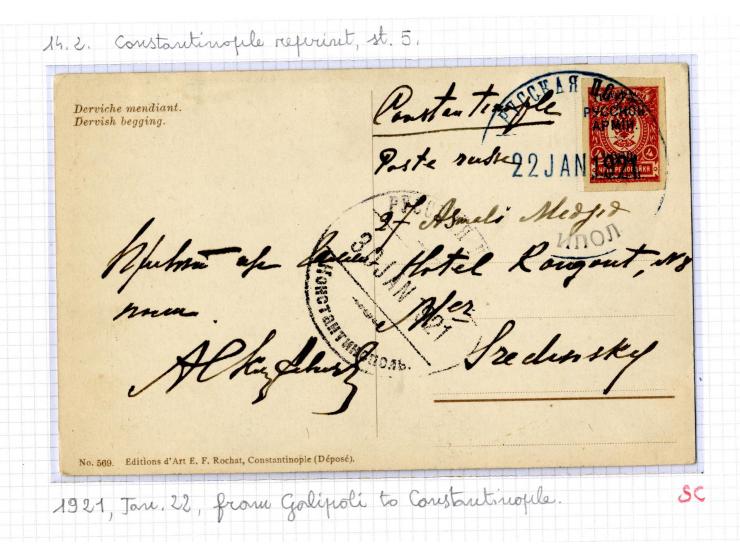 14.2. Constantinople reprint, st. 5.
Derviche mendiant.
Dervish begging.
Constantinople
Poste russe
27 Asmali Medjid
Hotel Rougout, N8
Mer
Sredinsky
РУССКАЯ ПОЧ
22 JAN 1921
РУССКОЙ
АРМІИ.
4
4
ИПОЛ
РУССКАЯ П
30 JAN 1921
КОНСТАНТИНОПОЛЬ.
Привѣт
No. 569. Editions d'Art E. F. Rochat, Constantinople (Déposé).
1921, Jan. 22, from Galipoli to Constantinople.
SC